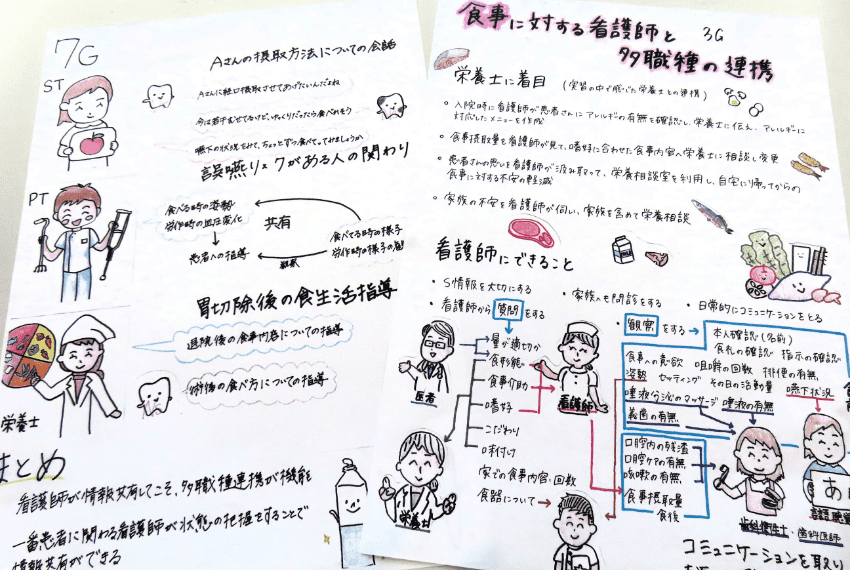 7G
Aさんの摂取方法についての会話
ST
Aさんに経口摂取させてあげたいんだよね
今は若干むせてるけど、ゆっくりだったら食べれそう
嚥下の状況をみて、ちょっとずつ食べてってみましょうか
誤嚥リスクがある人の関わり
PT
食べる時の姿勢
労作時の血圧変化
共有
食べてる時の様子
労作時の様子の観
患者への指導
観察
胃切除後の食生活指導
退院後の食事内容についての指導
術後の食べ方についての指導
栄養士
まとめ
看護師が情報共有してこそ、多職種連携が機能
一番患者に関わる看護師が状態の把握をすることで
情報共有ができる
食事に対する看護師と
多職種の連携
3G
栄養士に着目
(実習の中で学んだ栄養士との連携)
・入院時に看護師が患者さんにアレルギーの有無を確認し、栄養士に伝え、アレルギーに
対応したメニューを作成
・食事摂取量を看護師が見て、嗜好に合わせた食事内容へ栄養士に相談し変更
・患者さんの思いを看護師が汲み取って、栄養相談室を利用し、自宅に帰ってからの
食事に対する不安の軽減
・家族の不安を看護師が伺い、家族を含めて栄養相談
看護師にできること
・S情報を大切にする
・家族へも問診をする
・日常的にコミュニケーションをとる
・看護師から質問をする
・観察をする
量が適切か
食形態
食事介助
嗜好
こだわり
味付け
家での食事内容、回数
食器について
医者
看護師
栄養士
本人確認(名前)
食札の確認 指示の確認
食事への意欲 咀嚼の回数 排便の有無
姿勢 セッティング その日の活動量
唾液分泌のマッサージ 唾液の有無 嚥下状況
義歯の有無
口腔内の残渣
口腔ケアの有無
咳嗽の有無
食事摂取量
食後
歯科衛生士・歯科医師
言語聴覚
コミュニケーションを取り